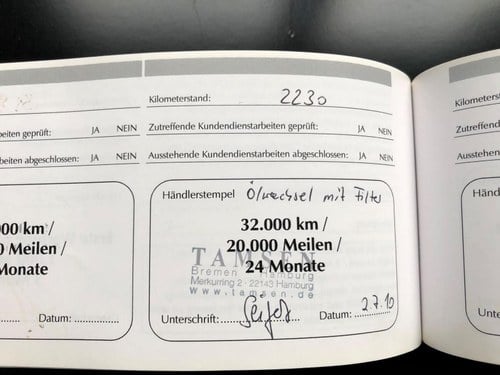 Kilometerstand: 2230
Kilometerstand
eiten geprüft: JA NEIN
Zutreffende Kundendienstarbeiten geprüft: JA NEIN
Zutreffende Kund
eiten abgeschlossen: JA NEIN
Ausstehende Kundendienstarbeiten abgeschlossen: JA NEIN
Ausstehende Kund
Händlerstempel Ölwechsel mit Filter
Händlerst
000 km /
0 Meilen /
Monate
32.000 km /
20.000 Meilen /
24 Monate
TAMSEN
Bremen Hamburg
Merkurring 2 · 22143 Hamburg
www.tamsen.de
Datum:
Unterschrift: Datum: 2.7.10
Unterschr